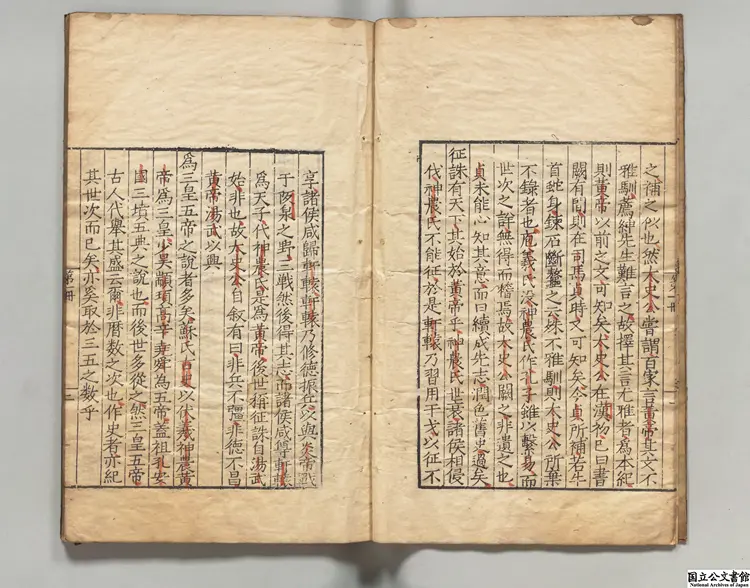 之補之似也然太史公嘗謂百家言黃帝其文不
雅馴薦紳先生難言之故擇其言尤雅者爲本紀
則黃帝以前之文可知矣太史公在漢初已曰書
闕有間則在司馬貞時又可知矣今貞所補若牛
首蛇身鍊石斷鰲之類殊不雅馴則太史公所棄
不錄者也庖羲氏沒神農氏作孔子雖以繫易而
世次之詳無得而稽焉故太史公闕之非遺之也
貞未能心知其意而曰續成先志潤色舊史過矣
征誅有天下其始於黃帝乎神農氏世衰諸侯相侵
伐神農氏不能征於是軒轅乃習用干戈以征不
享諸侯咸歸軒轅軒轅乃修德振兵以與炎帝戰
于阪泉之野三戰然後得其志而諸侯咸尊軒轅
爲天子代神農氏是爲黃帝後世稱征誅自湯武
始非也故太史公自叙有曰非兵不彊非德不昌
黃帝湯武以興
爲三皇五帝之說者多矣蘇氏古史以伏羲神農黃
帝爲三皇少昊顓頊高辛堯舜爲五帝蓋祖孔安
國三墳五典之說也而後世多從之然三皇五帝
古人代舉其盛云爾非曆数之次也作史者亦紀
其世次而已矣亦奚取於三五之数乎
国立公文書館
National Archives of Japan